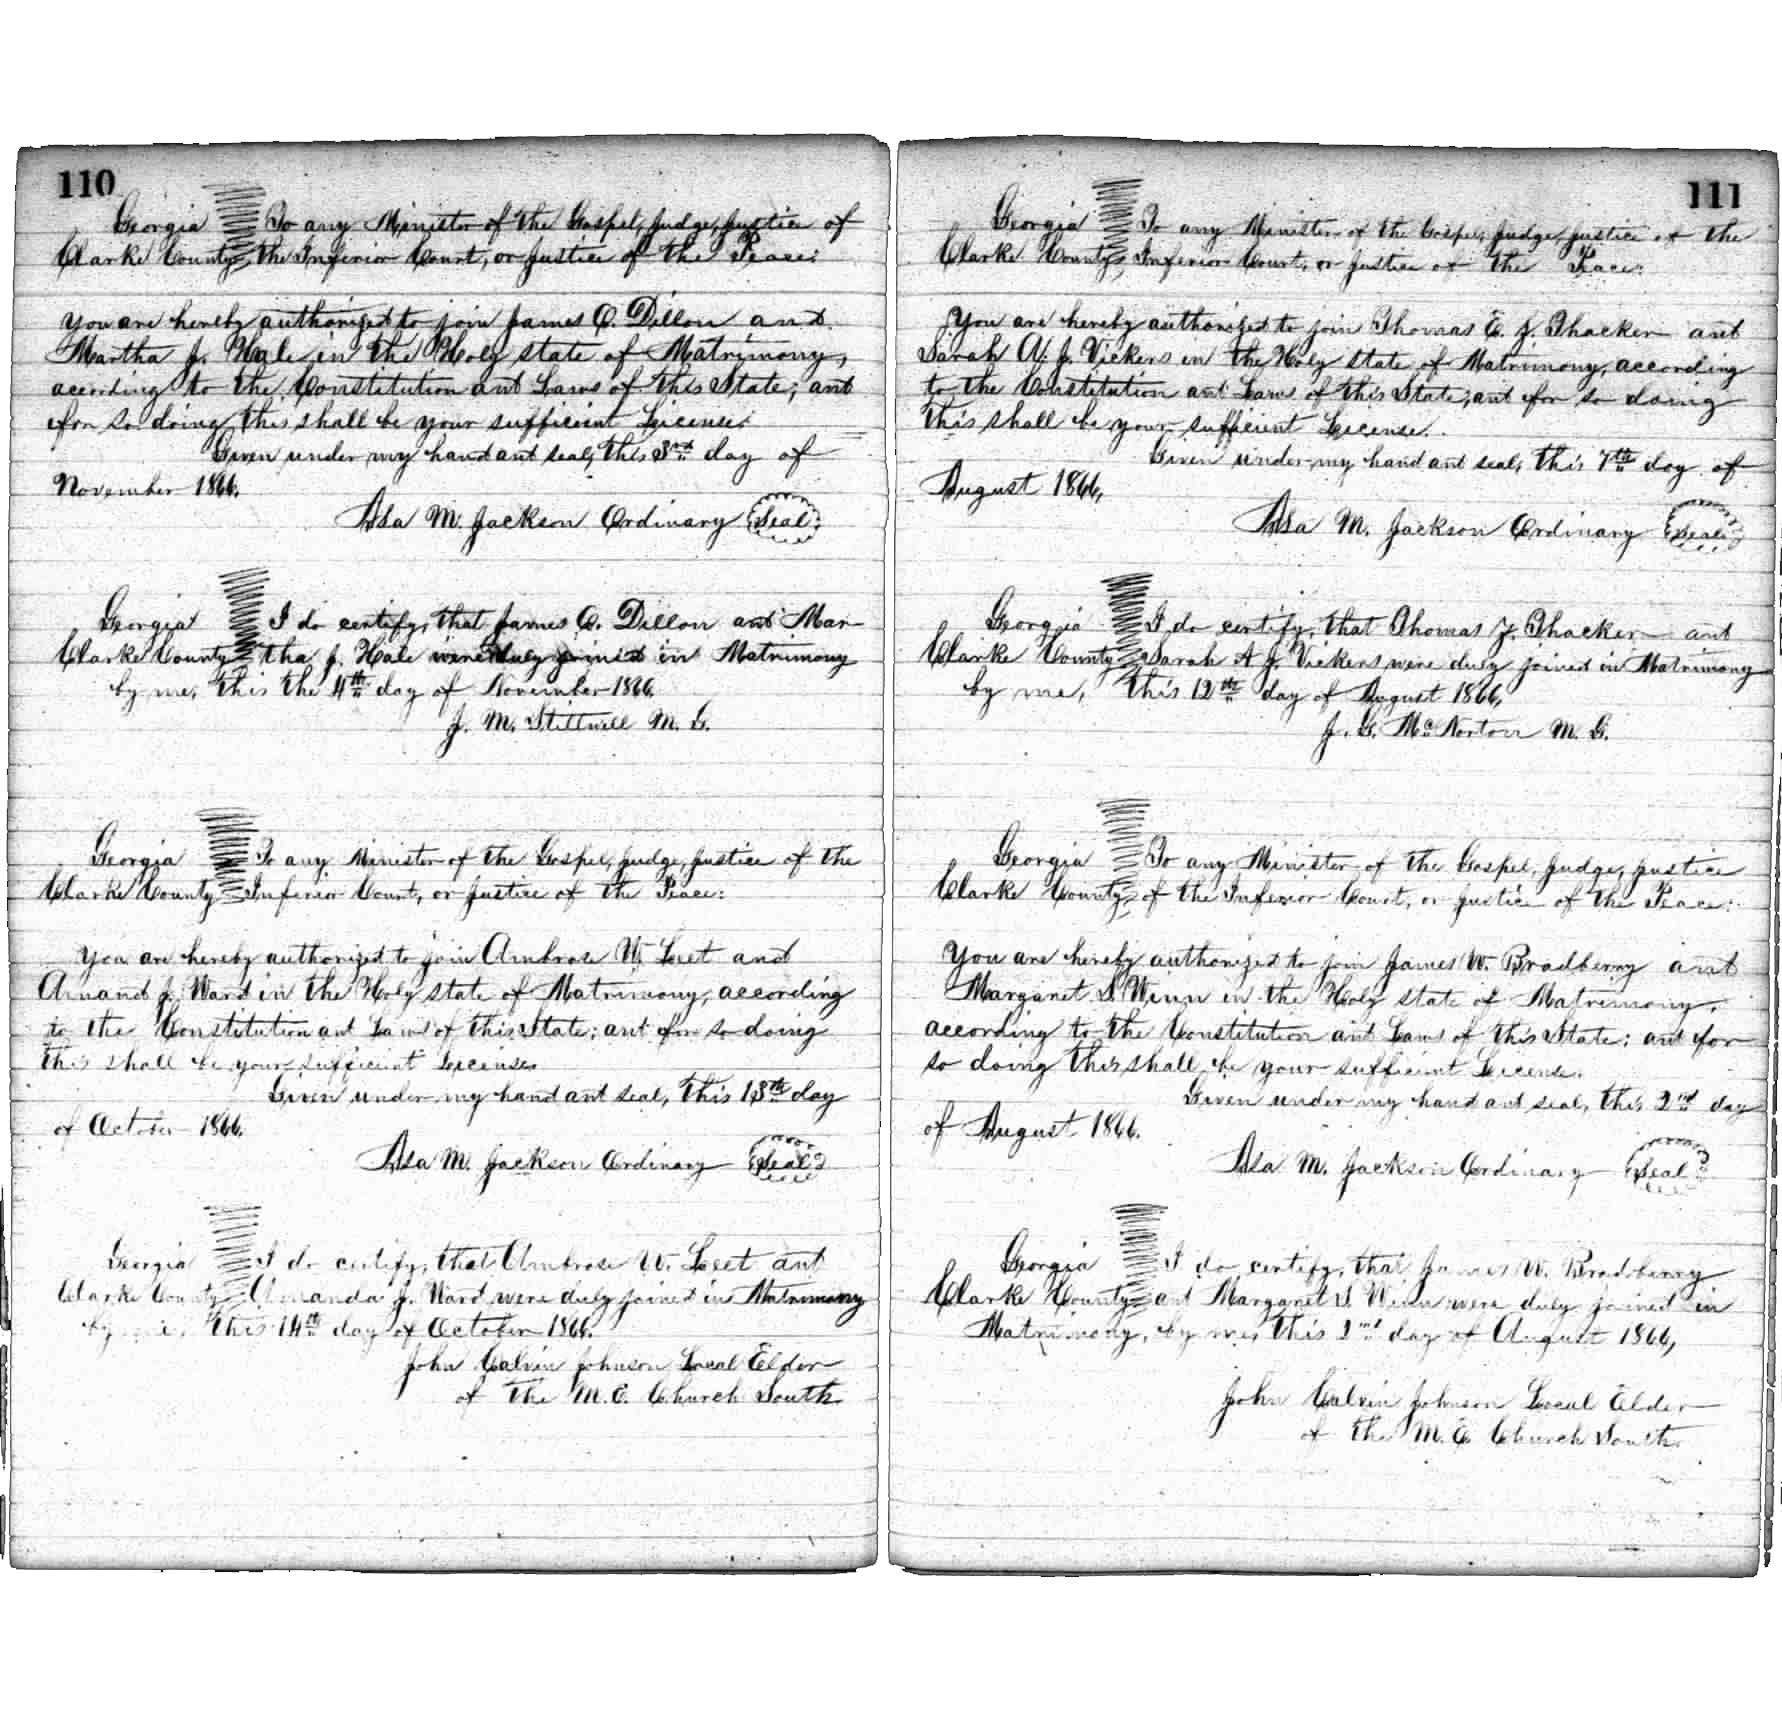 110
Georgia To any Minister of the Gospel, Judge, Justice of
Clarke County, the Inferior Court, or Justice of the Peace:
You are hereby authorized to join James O. Dillon and
Martha J. Hale in the Holy state of Matrimony,
acording to the Constitution and Laws of this State; and
for so doing this shall be your sufficient License.
Given under my hand and seal, this 3rd day of
November 1866,
Asa M. Jackson Ordinary Seal
Georgia I do certify, that James O. Dillon and Mar
Clarke County tha J. Hale were duly joined in Matrimony
by me, this the 4th day of November 1866,
J. M. Stillwell M. G.
Georgia To any Minister of the Gospel, Judge, Justice of the
Clarke County Inferior Court, or Justice of the Peace:
You are hereby authorized to join Ambrose W. Leet and
Amand J. Ward in the Holy state of Matrimony, according
to the Constitution and Laws of this State; and for so doing
this shall be your sufficient License.
Given under my hand and seal, this 13th day
of October 1866.
Asa M. Jackson Ordinary Seal
Georgia I do certify, that Ambrose W. Leet and
Clarke County Amanda J. Ward were duly joined in Matrimony
by me, this 14th day of October 1866.
John Calvin Johnson Local Elder
of the M. E. Church South
111
Georgia To any Minister of the Gospel, Judge, Justice of the
Clarke County Inferior Court, or Justice of the Peace:
You are hereby authorized to join Thomas E. J. Thacker and
Sarah A. J. Vickers in the Holy state of Matrimony, according
to the Constitution and Laws of this State; and for so doing
this shall be your sufficient License.
Given under my hand and seal, this 7th day of
August 1866,
Asa M. Jackson Ordinary Seal
Georgia I do certify, that Thomas J. Thacker and
Clarke County Sarah A J. Vickers were duly joined in Matrimony
by me, this 12th day of August 1866,
J. G. McNorton M. G.
Georgia To any Minister of the Gospel, Judge, Justice
Clarke County, of the Inferior Court, or Justice of the Peace:
You are hereby authorized to join James W. Bradberry and
Margaret S. Winn in the Holy state of Matrimony,
according to the Constitution and Laws of this State: and for
so doing this shall be your sufficient License.
Given under my hand and seal, this 2nd day
of August 1866.
Asa M. Jackson Ordinary Seal
Georgia I do certify, that James W. Bradberry
Clarke County and Margaret S. Winn were duly joined in
Matrimony, by me, this 2nd day of August 1866,
John Calvin Johnson Local Elder
of the M. E. Church South